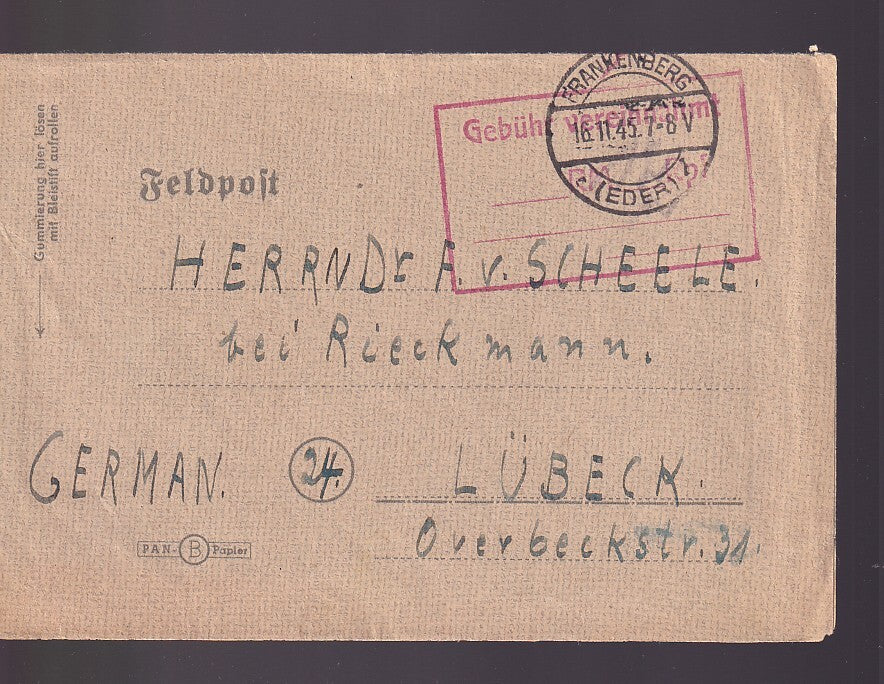 Gummierung hier lösen
mit Bleistift aufrollen
FRANKENBERG
16.11.45.7-8V
(EDER) 1
Gebühr vereinnahmt
Rpf
Feldpost
HERRN Dr F. v. SCHEELE.
bei Rieckmann.
GERMAN. 24. LÜBECK.
Overbeckstr. 31.
PAN-B Papier